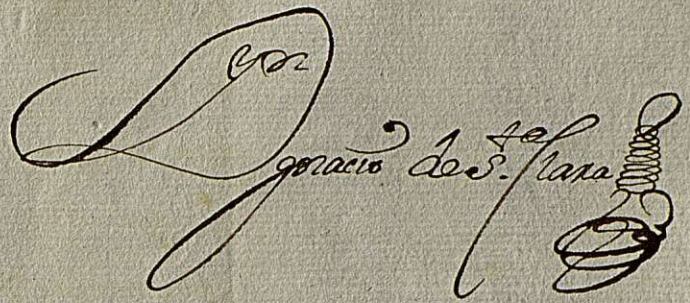 Ygnacio de S.ta Clara